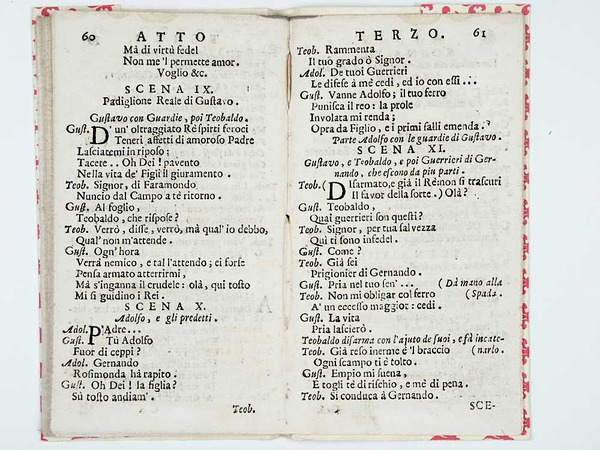 60 ATTO
Mà di virtù fedel
Non me 'l permette amor.
Voglio &c.
SCENA IX.
Padiglione Reale di Gustavo.
Gustavo con Guardie, poi Teobaldo.
Gust. D'un' oltraggiato Rè spirti feroci
Teneri affetti di amoroso Padre
Lasciatemi in riposo;
Tacete.. Oh Dei! pavento
Nella vita de' Figli il giuramento.
Teob. Signor, di Faramondo
Nuncio dal Campo a tè ritorno.
Gust. Al foglio,
Teobaldo, che rispose?
Teob. Verrò, disse, verrò, mà qual' io debbo,
Qual' non m'attende.
Gust. Ogn' hora
Verrà nemico, e tal l'attendo; ei forse
Pensa armato atterrirmi,
Mà s'inganna il crudele: olà, quì tosto
Mi si guidino i Rei.
SCENA X.
Adolfo, e gli predetti.
Adol. P'Adre...
Gust. Tù Adolfo
Fuor di ceppi?
Adol. Gernando
Rosimonda hà rapito.
Gust. Oh Dei! la figlia?
Sù tosto andiam'.
Teob.
TERZO. 61
Teob. Rammenta
Il tuo grado ò Signor.
Adol. De tuoi Guerrieri
Le difese à mè cedi, ed io con essi...
Gust. Vanne Adolfo; il tuo ferro
Punisca il reo: la prole
Involata mi renda;
Opra da Figlio, e i primi falli emenda.
Parte Adolfo con le guardie di Gustavo.
SCENA XI.
Gustavo, e Teobaldo, e poi Guerrieri di Ger-
nando, che escono da piu parti.
Teob. (Disarmato, e già il Rè: non si trascuri
Il favor della sorte.) Olà?
Gust. Teobaldo,
Quai guerrieri son questi?
Teob. Signor, per tua salvezza
Quì ti sono infedel.
Gust. Come?
Teob. Già sei
Prigionier di Gernando.
Gust. Pria nel tuo sen'... (Dà mano alla
Teob. Non mi obligar col ferro (Spada.
A' un eccesso maggior: cedi.
Gust. La vita
Pria lascierò.
Teobaldo disarma con l'ajuto de suoi, e fà incate-
Teob. Già reso inerme è 'l braccio (narlo.
Ogni scampo ti è tolto.
Gust. Empio mi suena,
E togli tè di rischio, e mè di pena.
Teob. Si conduca à Gernando.
SCE-